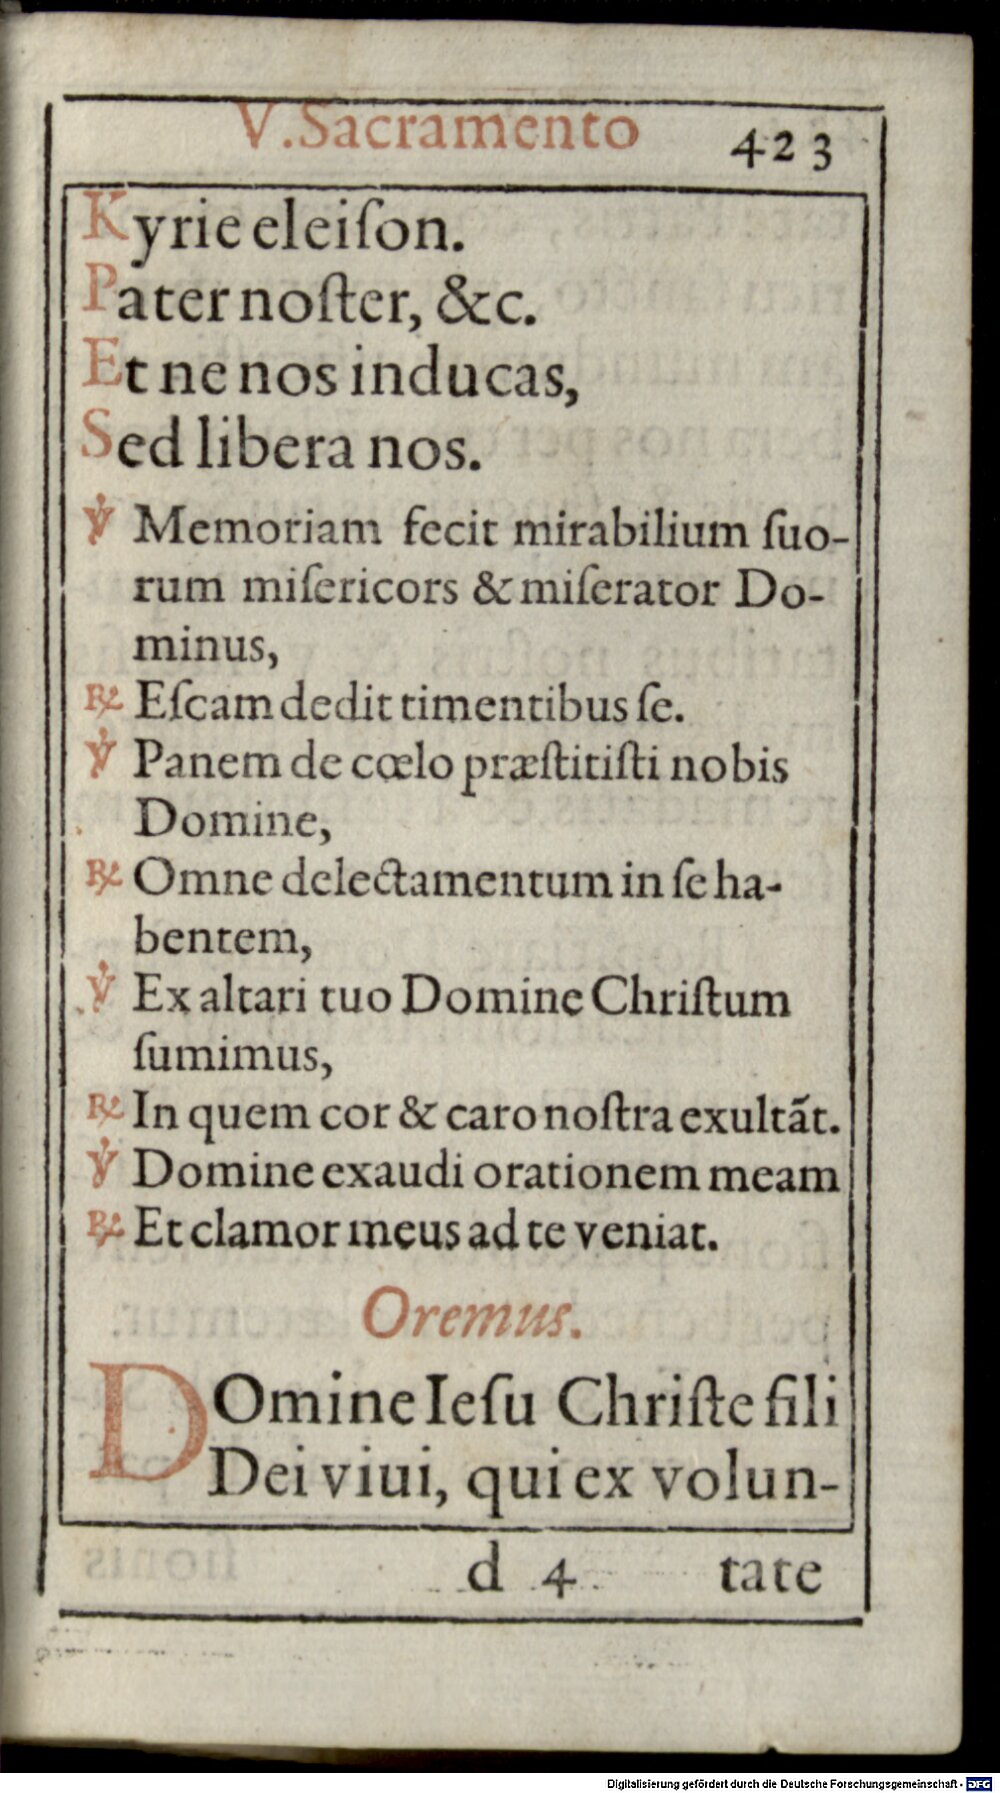 V. Sacramento 423
Kyrie eleiſon.
Pater noſter, &c.
Et ne nos inducas,
Sed libera nos.
℣ Memoriam fecit mirabilium ſuo-
rum miſericors & miſerator Do-
minus,
℟ Eſcam dedit timentibus ſe.
℣ Panem de cœlo præſtitiſti nobis
Domine,
℟ Omne delectamentum in ſe ha-
bentem,
℣ Ex altari tuo Domine Chriſtum
ſumimus,
℟ In quem cor & caro noſtra exultãt.
℣ Domine exaudi orationem meam
℟ Et clamor meus ad te veniat.
Oremus.
DOmine Ieſu Chriſte fili
Dei viui, qui ex volun-
d 4 tate
Digitalisierung gefördert durch die Deutsche Forschungsgemeinschaft - DFG